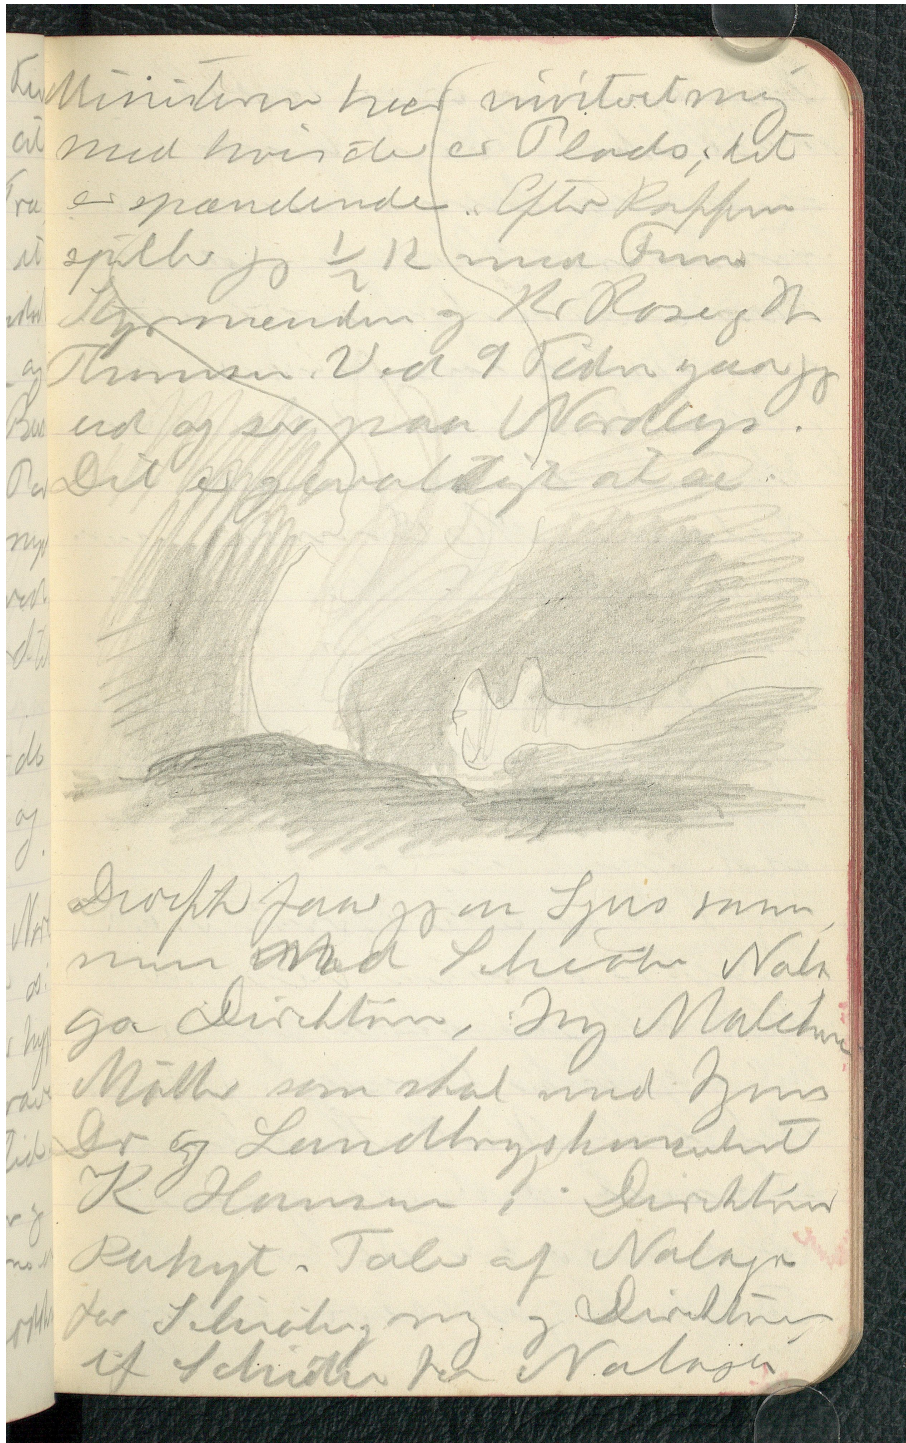 Ministeren har inviteret mig
med hvis der er Plads; det
er spændende. Efter Kaffen
spiller jeg 1/2 R med Frue
Styrmanden og Hr Rose og Hr
Thomsen. Ved 9 Tiden gaar jeg
ud og ser paa Nordlys.
Det er gevaldigt at se.
Derefter faar jeg en Sjus sam
men med Schiøler Nala
ga Direktøren, Ing Malchow
Møller som skal med
Dr og Landbrugskonsulent
K Hansen, Direktøren
Tale af Nalaga
for Schiøler og mig og Direktøren
af Schiøler for Nalaga